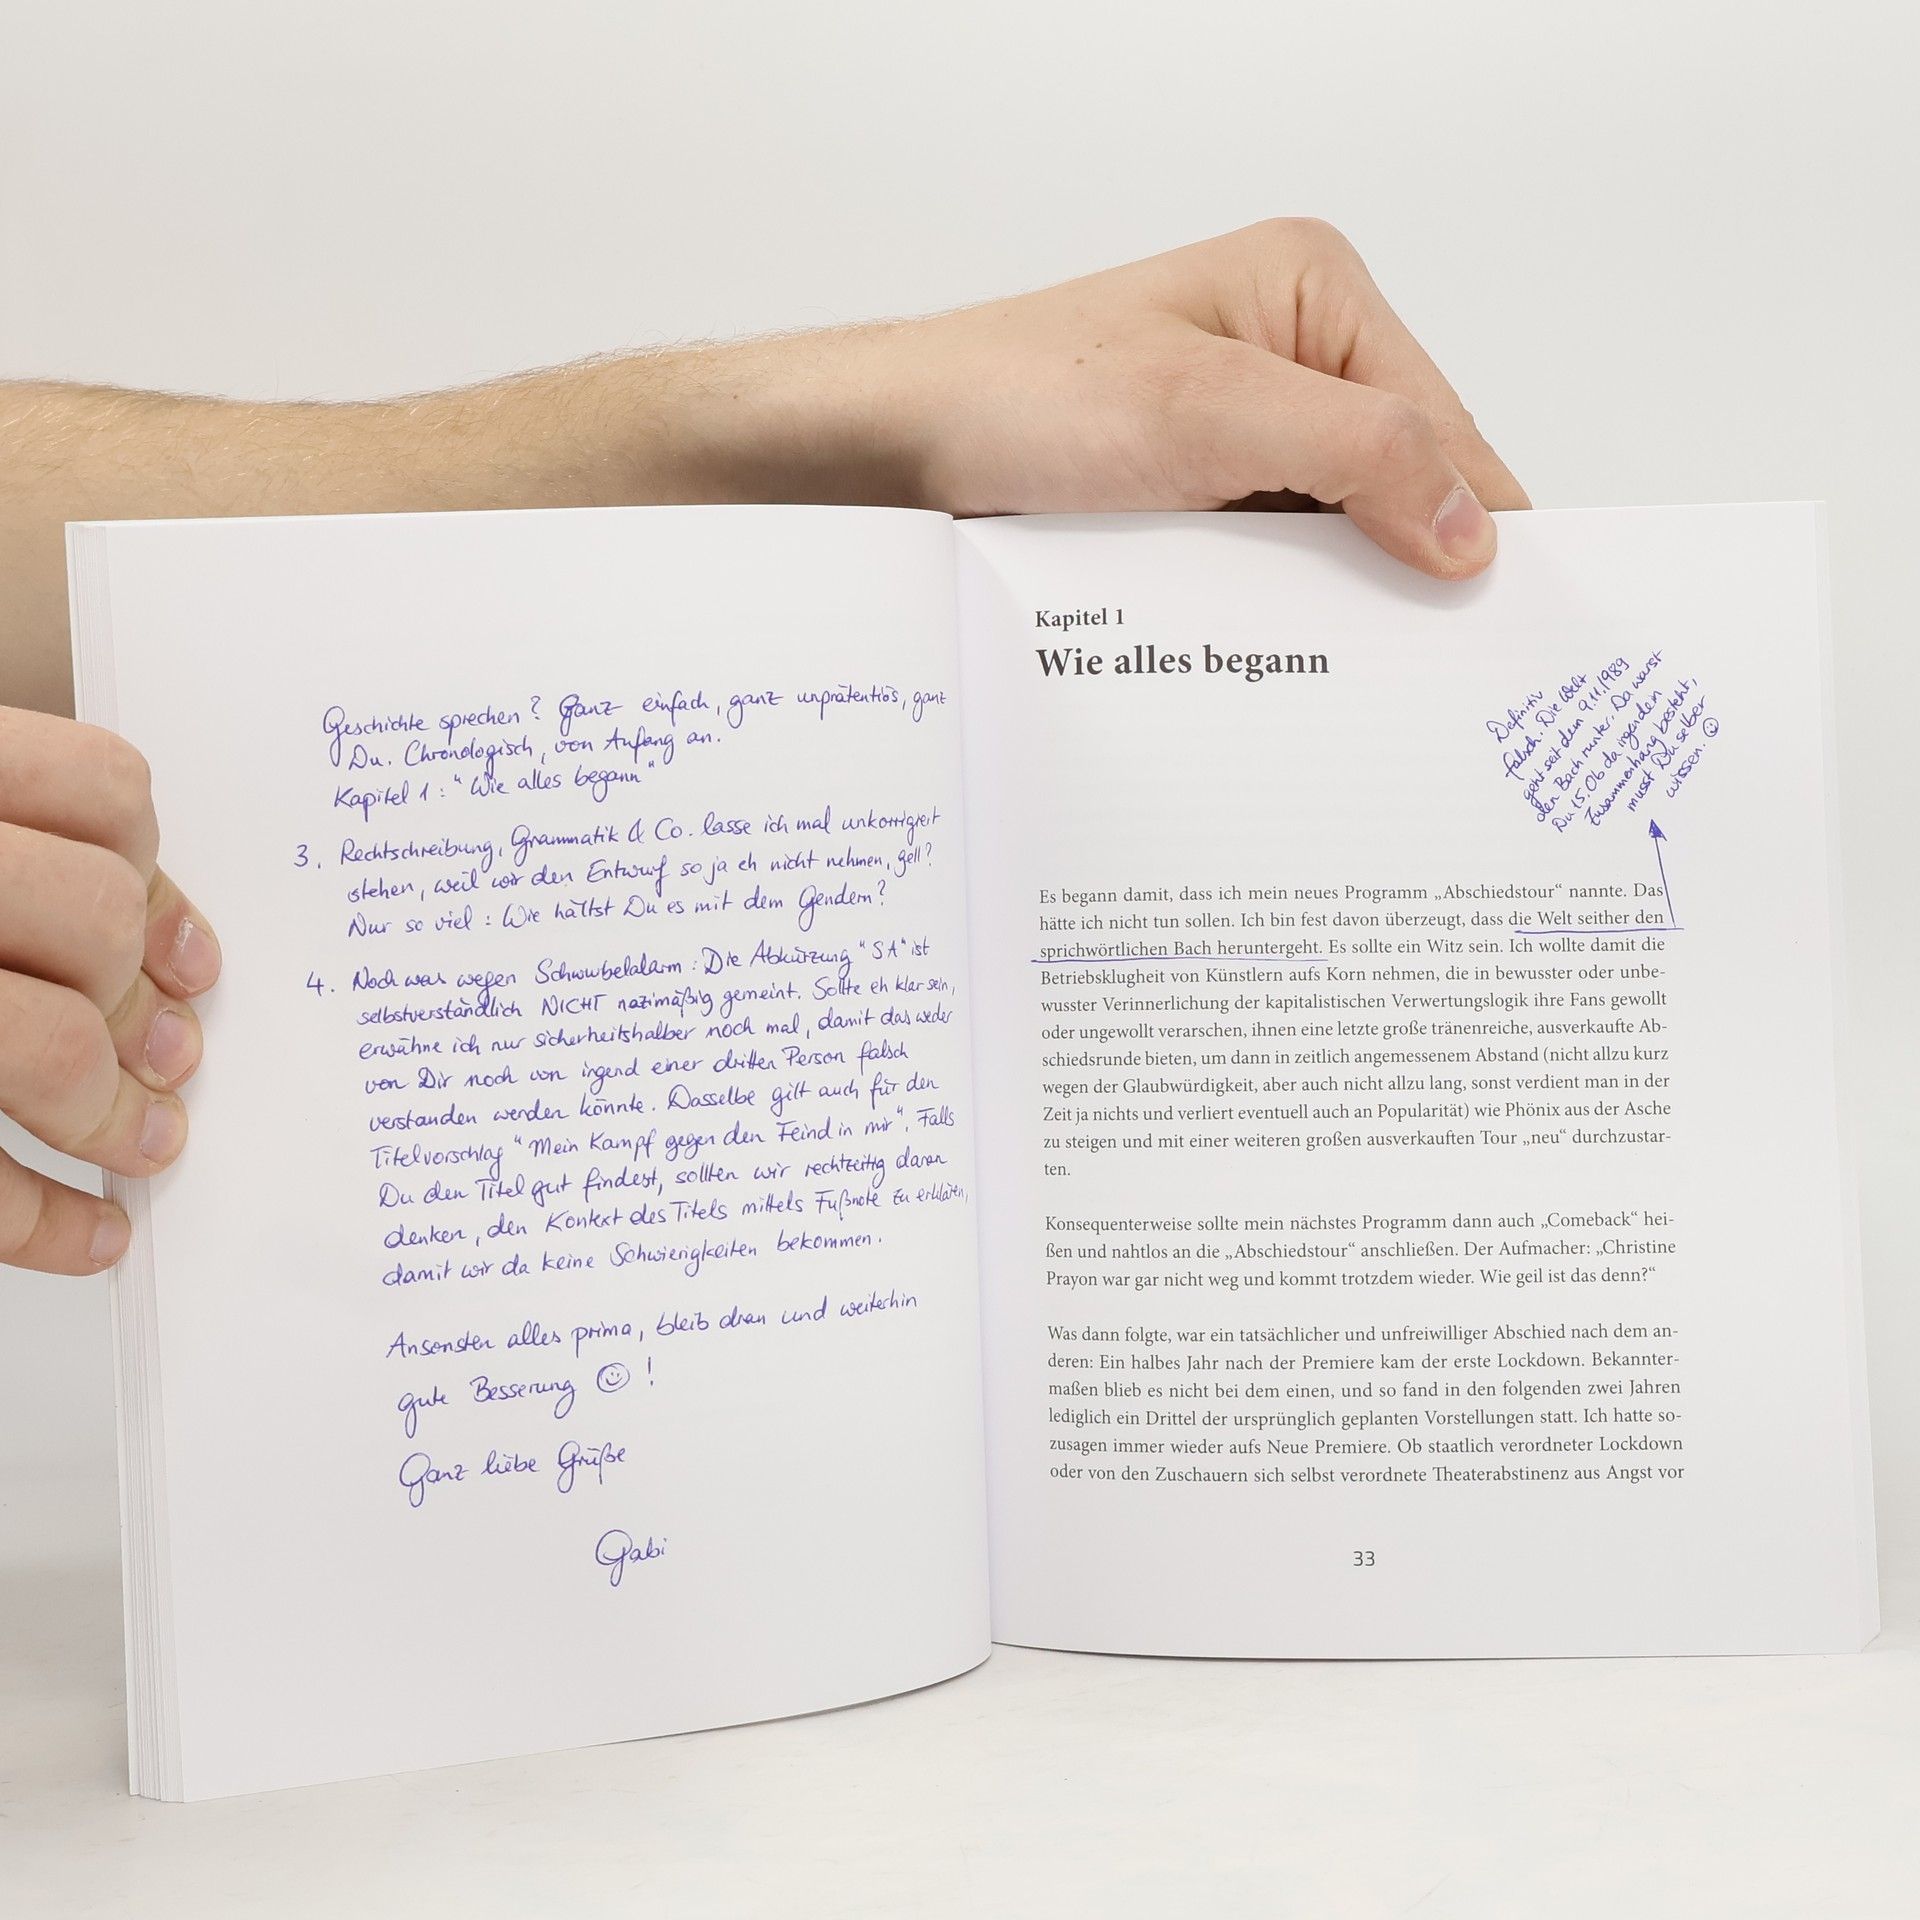 Geschichte sprechen? Ganz einfach, ganz unprätentiös, ganz
Du. Chronologisch, von Anfang an.
Kapitel 1: "Wie alles begann"
3. Rechtschreibung, Grammatik & Co. lasse ich mal unkorrigiert
stehen, weil wir den Entwurf so ja eh nicht nehmen, gell?
Nur so viel: Wie hältst Du es mit dem Gendern?
4. Noch was wegen Schwurbelalarm: Die Abkürzung "SA" ist
selbstverständlich NICHT nazimäßig gemeint. Sollte eh klar sein,
erwähne ich nur sicherheitshalber noch mal, damit das weder
von Dir noch von irgend einer dritten Person falsch
verstanden werden könnte. Dasselbe gilt auch für den
Titelvorschlag "Mein Kampf gegen den Feind in mir". Falls
Du den Titel gut findest, sollten wir rechtzeitig daran
denken, den Kontext des Titels mittels Fußnote zu erklären,
damit wir da keine Schwierigkeiten bekommen.
Ansonsten alles prima, bleib dran und weiterhin
gute Besserung ☺ !
Ganz liebe Grüße
Gabi
Kapitel 1
Wie alles begann
Definitiv
falsch. Die Welt
geht seit dem 9.11.1989
den Bach runter. Da warst
Du 15. Ob da irgendein
Zusammenhang besteht,
musst Du selber
wissen. ☺
Es begann damit, dass ich mein neues Programm „Abschiedstour“ nannte. Das
hätte ich nicht tun sollen. Ich bin fest davon überzeugt, dass die Welt seither den
sprichwörtlichen Bach heruntergeht. Es sollte ein Witz sein. Ich wollte damit die
Betriebsklugheit von Künstlern aufs Korn nehmen, die in bewusster oder unbe-
wusster Verinnerlichung der kapitalistischen Verwertungslogik ihre Fans gewollt
oder ungewollt verarschen, ihnen eine letzte große tränenreiche, ausverkaufte Ab-
schiedsrunde bieten, um dann in zeitlich angemessenem Abstand (nicht allzu kurz
wegen der Glaubwürdigkeit, aber auch nicht allzu lang, sonst verdient man in der
Zeit ja nichts und verliert eventuell auch an Popularität) wie Phönix aus der Asche
zu steigen und mit einer weiteren großen ausverkauften Tour „neu“ durchzustar-
ten.
Konsequenterweise sollte mein nächstes Programm dann auch „Comeback“ hei-
ßen und nahtlos an die „Abschiedstour“ anschließen. Der Aufmacher: „Christine
Prayon war gar nicht weg und kommt trotzdem wieder. Wie geil ist das denn?“
Was dann folgte, war ein tatsächlicher und unfreiwilliger Abschied nach dem an-
deren: Ein halbes Jahr nach der Premiere kam der erste Lockdown. Bekannter-
maßen blieb es nicht bei dem einen, und so fand in den folgenden zwei Jahren
lediglich ein Drittel der ursprünglich geplanten Vorstellungen statt. Ich hatte so-
zusagen immer wieder aufs Neue Premiere. Ob staatlich verordneter Lockdown
oder von den Zuschauern sich selbst verordnete Theaterabstinenz aus Angst vor
33